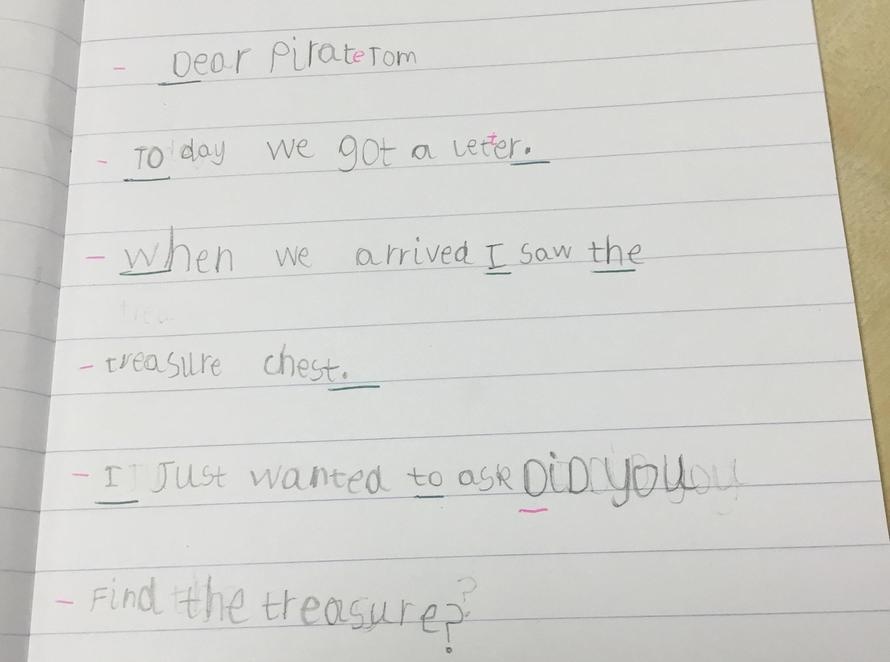 - Dear PirateTom
- TO day we got a letter.
- When we arrived I saw the
- treasure chest.
- I Just wanted to ask DiD you
- Find the treasure?